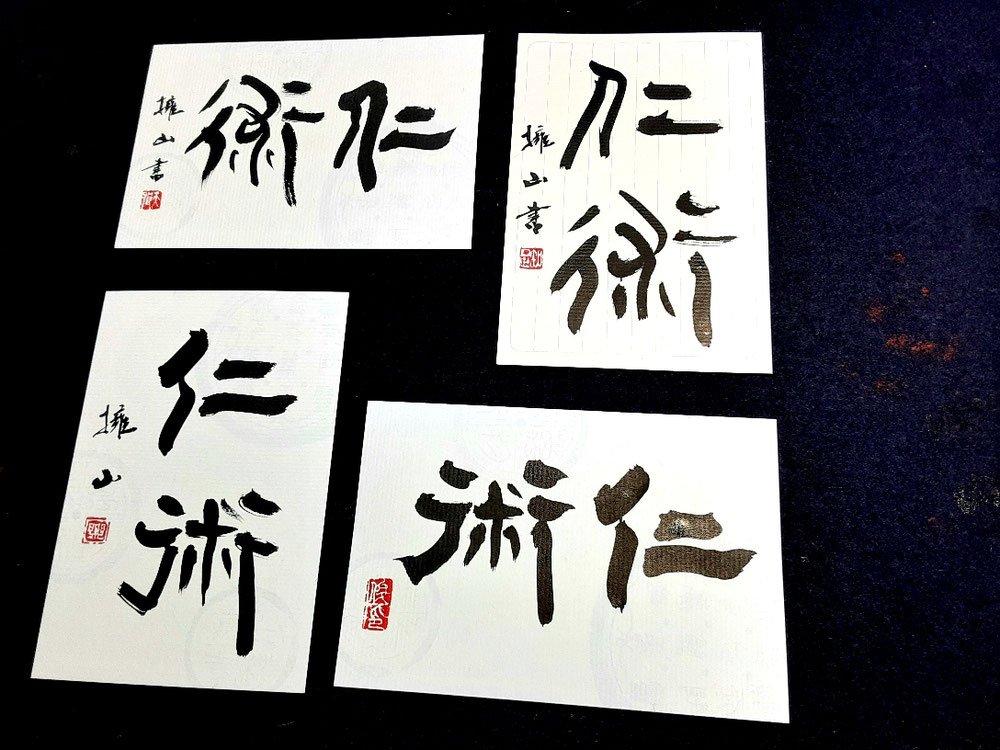 仁術
擁山書
仁
術
擁山書
仁
術
擁山
仁術